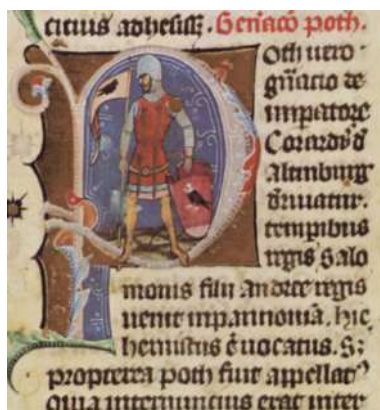 citius adhesisset. Gen̄aco poth.
Poth uero
gn̄acio de
imperatore
Corardo d̕
altinburg
diriuatur.
temporibus
regis Salo
monis filii andree regis
uenit in pannoniā. hic
hernistus ē uocatus. S;
propterea poth fuit appellat᷒
quia internuncius erat inter